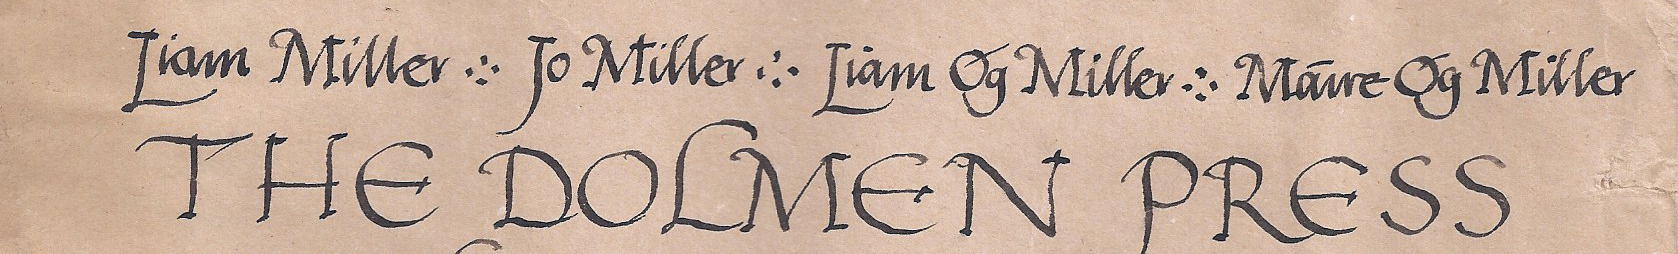 Liam Miller ·:· Jo Miller ·:· Liam Óg Miller ·:· Máire Óg Miller
THE DOLMEN PRESS